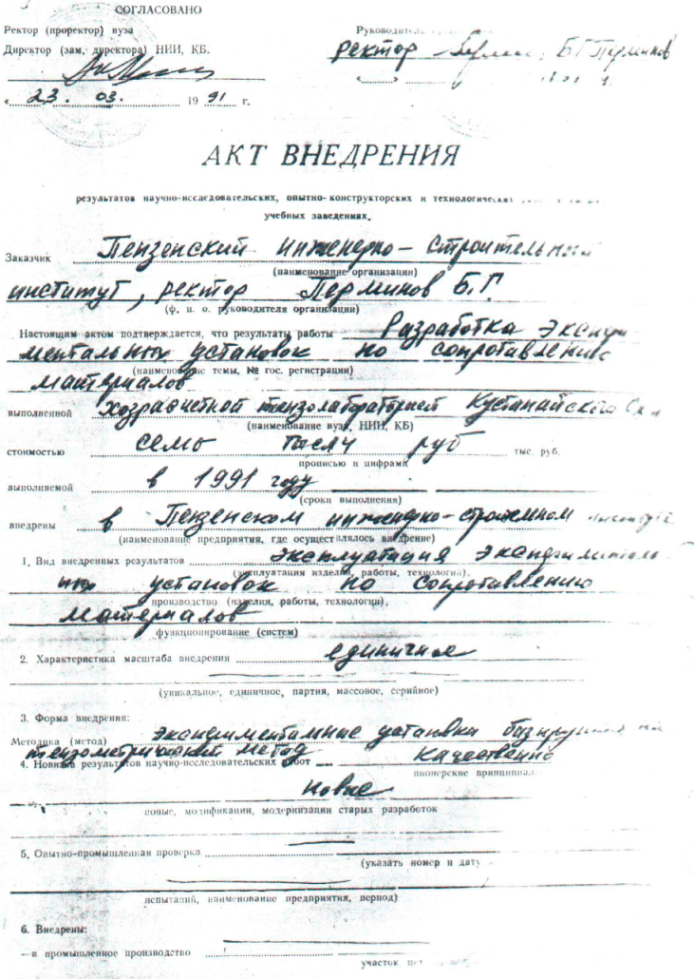 СОГЛАСОВАНО
Ректор (проректор) вуза
Руководитель
Директор (зам. директора) НИИ, КБ.
ректор Б.Г. Перминов
« 23. 03. 1991 г.
АКТ ВНЕДРЕНИЯ
результатов научно-исследовательских, опытно-конструкторских и технологических
учебных заведениях.
Заказчик Пензенский инженерно-строительный
(наименование организации)
институт, ректор Перминов Б.Г.
(ф. и. о. руководителя организации)
Настоящим актом подтверждается, что результаты работы Разработка экспери
ментальных установок по сопротивлению
(наименование темы, № гос. регистрации)
материалов
выполненной хозрасчетной тензолабораторией Кустанайского
(наименование вуза, НИИ, КБ)
стоимостью семь тысяч руб тыс. руб.
прописью и цифрами
выполняемой в 1991 году
(сроки выполнения)
внедрены в Пензенском инженерно-строительном
(наименование предприятия, где осуществлялось внедрение)
1. Вид внедренных результатов эксплуатация эксперименталь
(эксплуатация изделия, работы, технологии),
ных установок по сопротивлению
производство (изделия, работы, технологии),
материалов
функционирование (систем)
2. Характеристика масштаба внедрения единичное
(уникальное, единичное, партия, массовое, серийное)
3. Форма внедрения:
Методика (метод) Экспериментальные установки на
тензометрический метод
4. Новизна результатов научно-исследовательских работ качественно
пионерские принципиально
новые
новые, модификации, модернизации старых разработок
5. Опытно-промышленная проверка
(указать номер и дату
испытаний, наименование предприятия, период)
6. Внедрены:
—в промышленное производство
участок